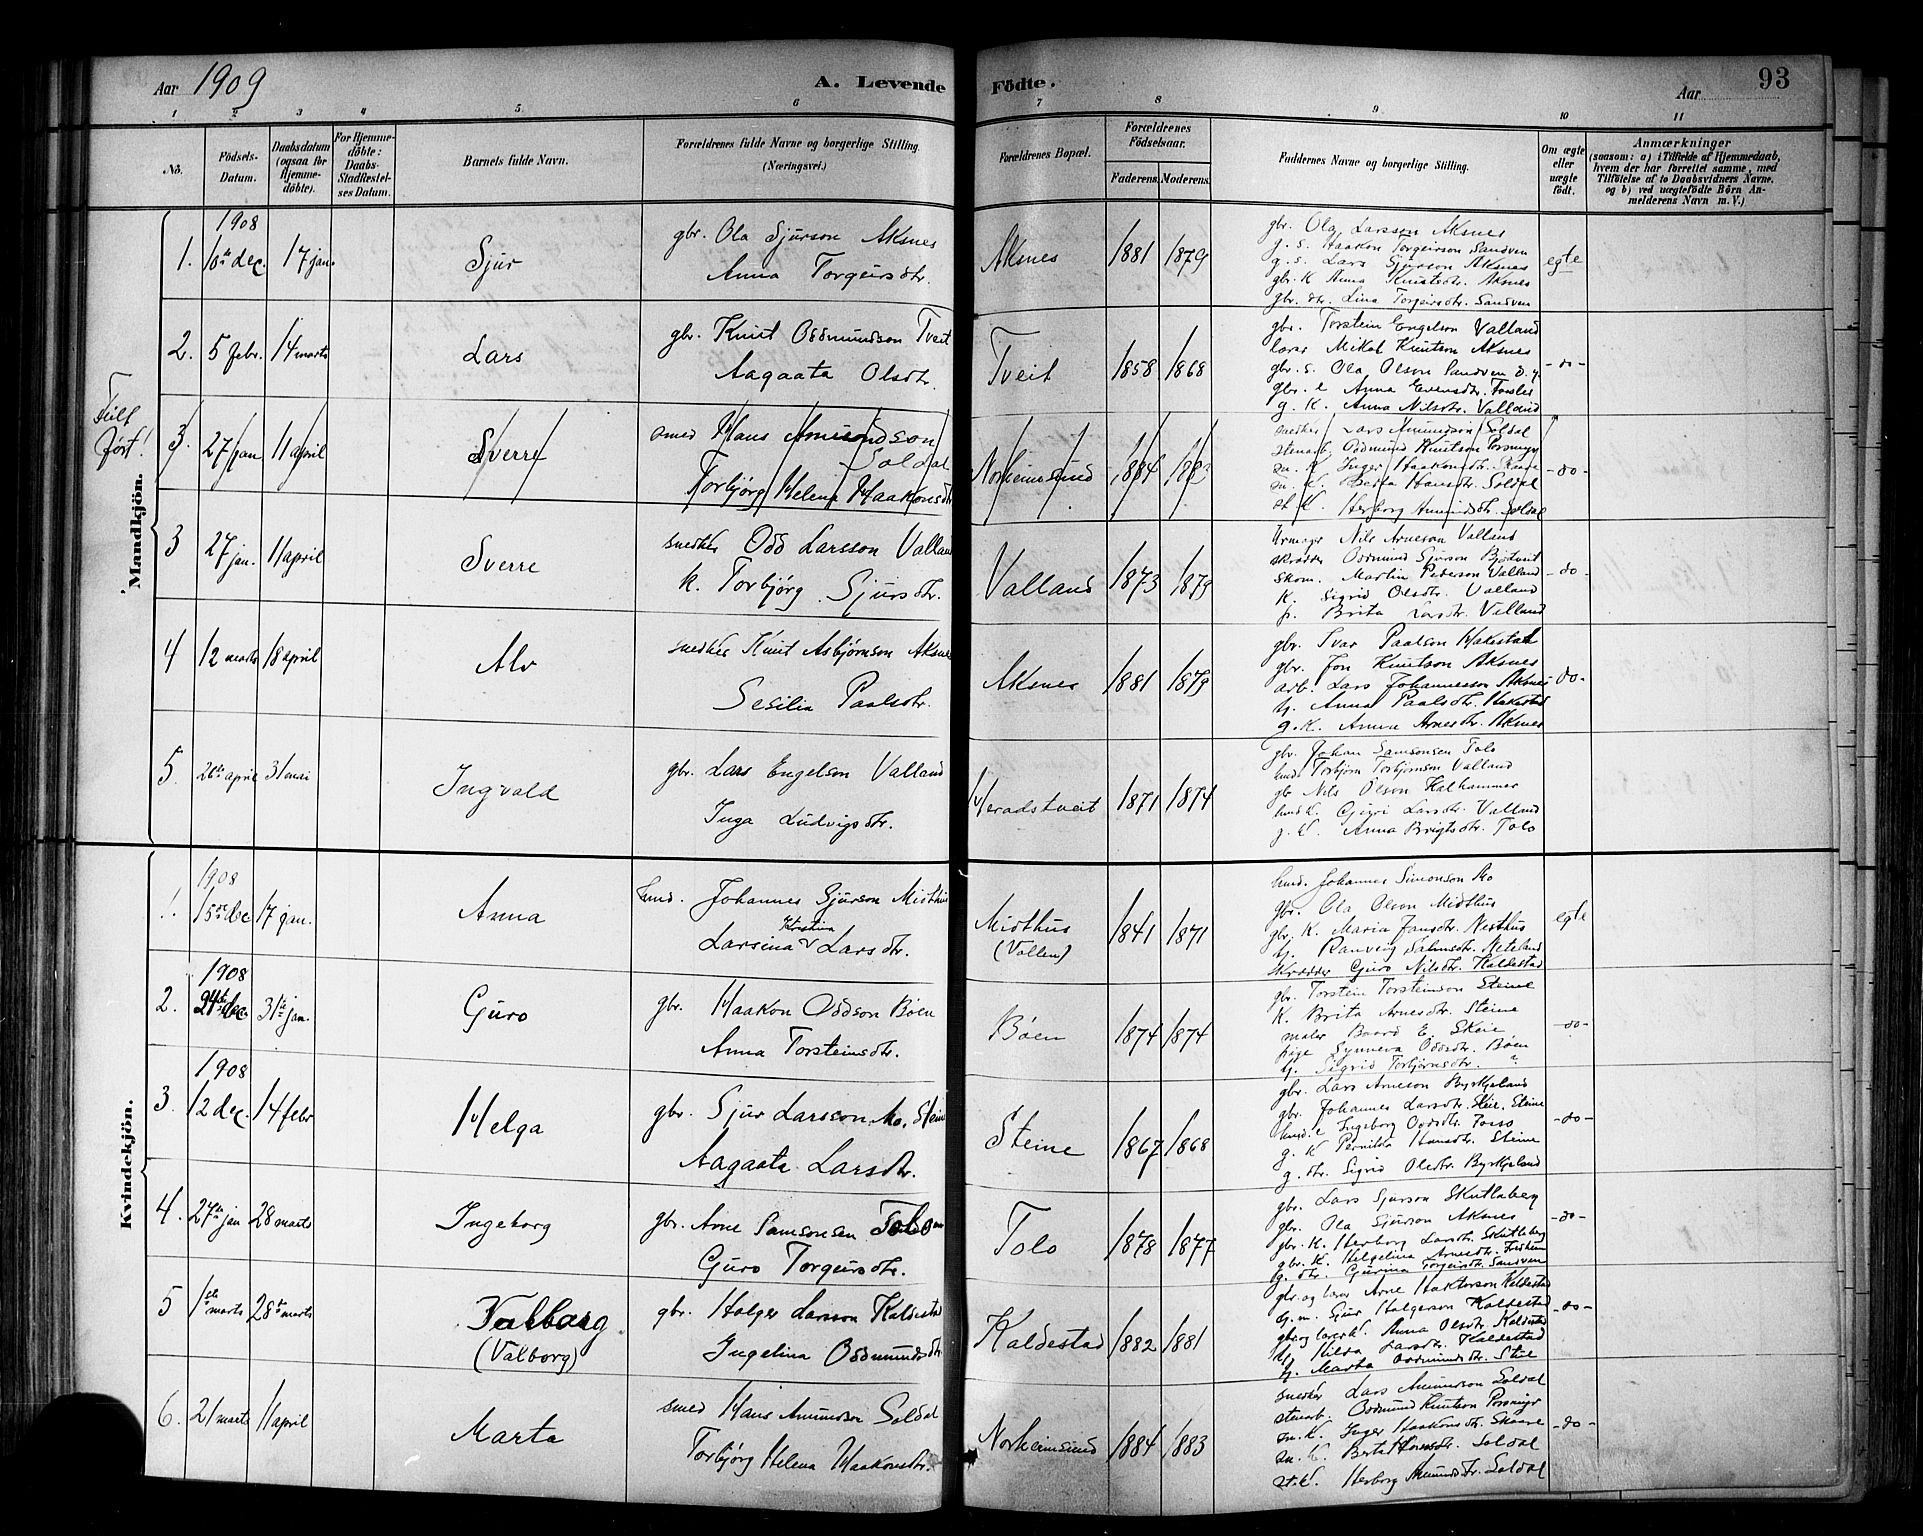 Aar 1909
A. Levende Födte.
Aar
93
1 2 3 4 5 6 7 8 9 10 11
No.
Födsels-Datum.
Daabsdatum (ogsaa for Hjemme-döbte).
For Hjemme-döbte: Daabs-StadfæstelsesDatum.
Barnets fulde Navn.
Forældrenes fulde Navne og borgerlige Stilling.
(Næringsvei.)
Forældrenes Bopæl.
Forældrenes Födselsaar.
Faderens. Moderens.
Faddernes Navne og borgerlige Stilling.
Om ægte eller uægte födt.
Anmærkninger
(saasom: a) i Tilfælde af Hjemmedaab, hvem der har forrettet samme, med Tilföielse af to Daabsvidners Navne, og b) ved uægtefödte Börn Anmelderens Navn m. V.)
Mandkjön.
1908
1. 10de dec. 17 jan. Sjur
gbr. Ola Sjurson Aksnes
Anna Torgeirsdtr.
Aksnes 1881 1879
gbr. Ola Larsson Aksnes
g. s. Haakon Torgeirson Sandven
g. s. Lars Sjurson Aksnes
gbr. K Anna Knutsdtr. Aksnes
gbr. dtr. Lina Torgeirsdtr. Sandven
egte
2. 5 febr. 14 marts Lars
gbr. Knut Oddmundson Tveit
Aagaata Olsdtr.
Tveit 1858 1868
gbr. Torstein Engelson Valland
lærer Mikal Knutson Aksnes
gbr. s. Ola Olson Sandven d. y.
gbr. e Anna Evensdtr.
g. K. Anna Nilsdtr. Valland
-do-
Feil ført!
3. 27 jan 11 april Sverre
smed Hans Amundson Soldal
Torbjørg Helena Haakonsdtr
Norheimsund 1884
snedker Lars Amundson Soldal
stenarb. Oddmund Knutson
sn. K. Inger Haakonsdtr. Skaare
sn. K. Berta Hansdtr. Soldal
st. K. Herborg Amundsdtr. Soldal
-do-
3 27 jan. 11 april Sverre
snedker Odd Larsson Valland
k. Torbjørg Sjursdtr.
Valland 1873 1879
Urmager Nils Arneson Valland
skrædder Oddmund Sjurson Bjotveit
skom. Martin Pederson Valland
K. Sigrid Olsdtr. Valland
p. Brita Larsdtr. Valland
-do-
4 12 marts 18 april Alv
snedker Knut Asbjørnson Aksnes
Sesilia Paalsdtr.
Aksnes 1881 1879
gbr. Ivar Paalson Hakestad
gbr. Jon Knutson Aksnes
arb. Lars Johannesson Aksnes
tj. Anna Paalsdtr. Hakestad
g. K. Anna Arnesdtr. Aksnes
-do-
5. 26de april 31 mai Ingvald
gbr. Lars Engelson Valland
Inga Ludvigsdtr.
Heradstveit 1871 1874
gbr. Johan Samsonsen Tolo
husm. Torbjørn Torbjørnsen Valland
gbr Nils Olson Kalhammer
husm. K. Guri Larsdtr. Valland
g. K. Anna Brigtsdtr. Tolo
Kvindekjön.
1908
1. 15de dec 17 jan. Anna
husm. Johannes Sjurson Midthus
Larsina Kristina Larsdtr.
Midthus
(Vallen) 1841 1871
husm. Johannes Simonson Mo
gbr. Ola Olson Midthus
gbr. K. Maria Jansdtr. Nesthus
tj. Ranveig Salmsdtr. Neteland
skrædder Guro Nilsdtr. Kaldestad
egte
1908
2. 24de dec. 31te jan. Guro
gbr. Haakon Oddson Bøen
Anna Torsteinsdtr.
Bøen 1874 1874
gbr. Torstein Torsteinson Steine
K. Brita Arnesdtr. Steine
maler Baard E. Skeie
pige Synneva Oddsdtr. Bøen
tj. Sigrid Torbjørnsdtr. "
-do-
1908
3. 12 dec. 14 febr Helga
gbr. Sjur Larsson Mo, Steine
Aagaata Larsdtr.
Steine 1867 1868
gbr. Lars Arneson Byrkjeland
gbr. Johannes Larsdtr. Skeie, Steine
husm. e Ingeborg Oddsdtr. Fosso
g. K Pernilla Hansdtr. Steine
g. dtr. Sigrid Olsdtr. Byrkjeland
-do-
4. 27de jan 28 marts Ingeborg
gbr. Arne Samsonsen Tolo
Guro Torgeirsdtr.
Tolo 1878 1877
gbr. Lars Sjurson Skutlaberg
gbr. Ola Sjurson Aksnes
gbr. K. Herborg Larsdtr. Skutlaberg
gbr. K. Helgelina Arnesdtr.
g. dtr. Gjurina Torgeirsdtr. Sandven
-do-
5 1ste marts 28de marts Valborg
(Valborg)
gbr. Holger Larsson Kaldestad
Ingelina Oddmundsdtr
Kaldestad 1882 1881
gbr. og lærer Arne Haktorson Kaldestad
g. m. Sjur Holgerson Kaldestad
gbr. og lærer K. Anna Olsdtr. Kaldestad
tj. Hilda Larsdtr. Kaldestad
tj. Marta Oddmundsdtr.
-do-
6. 21 marts 11 april Marta
smed Hans Amundson Soldal
Torbjørg Helena Haakonsdtr.
Norheimsund 1884 1883
snedker Lars Amundson Soldal
stenarb. Oddmund Knutson
sn. K. Inger Haakonsdtr. Skaare
sn. K. Berta Hansdtr. Soldal
st. K. Herborg Amundsdtr. Soldal
-do-